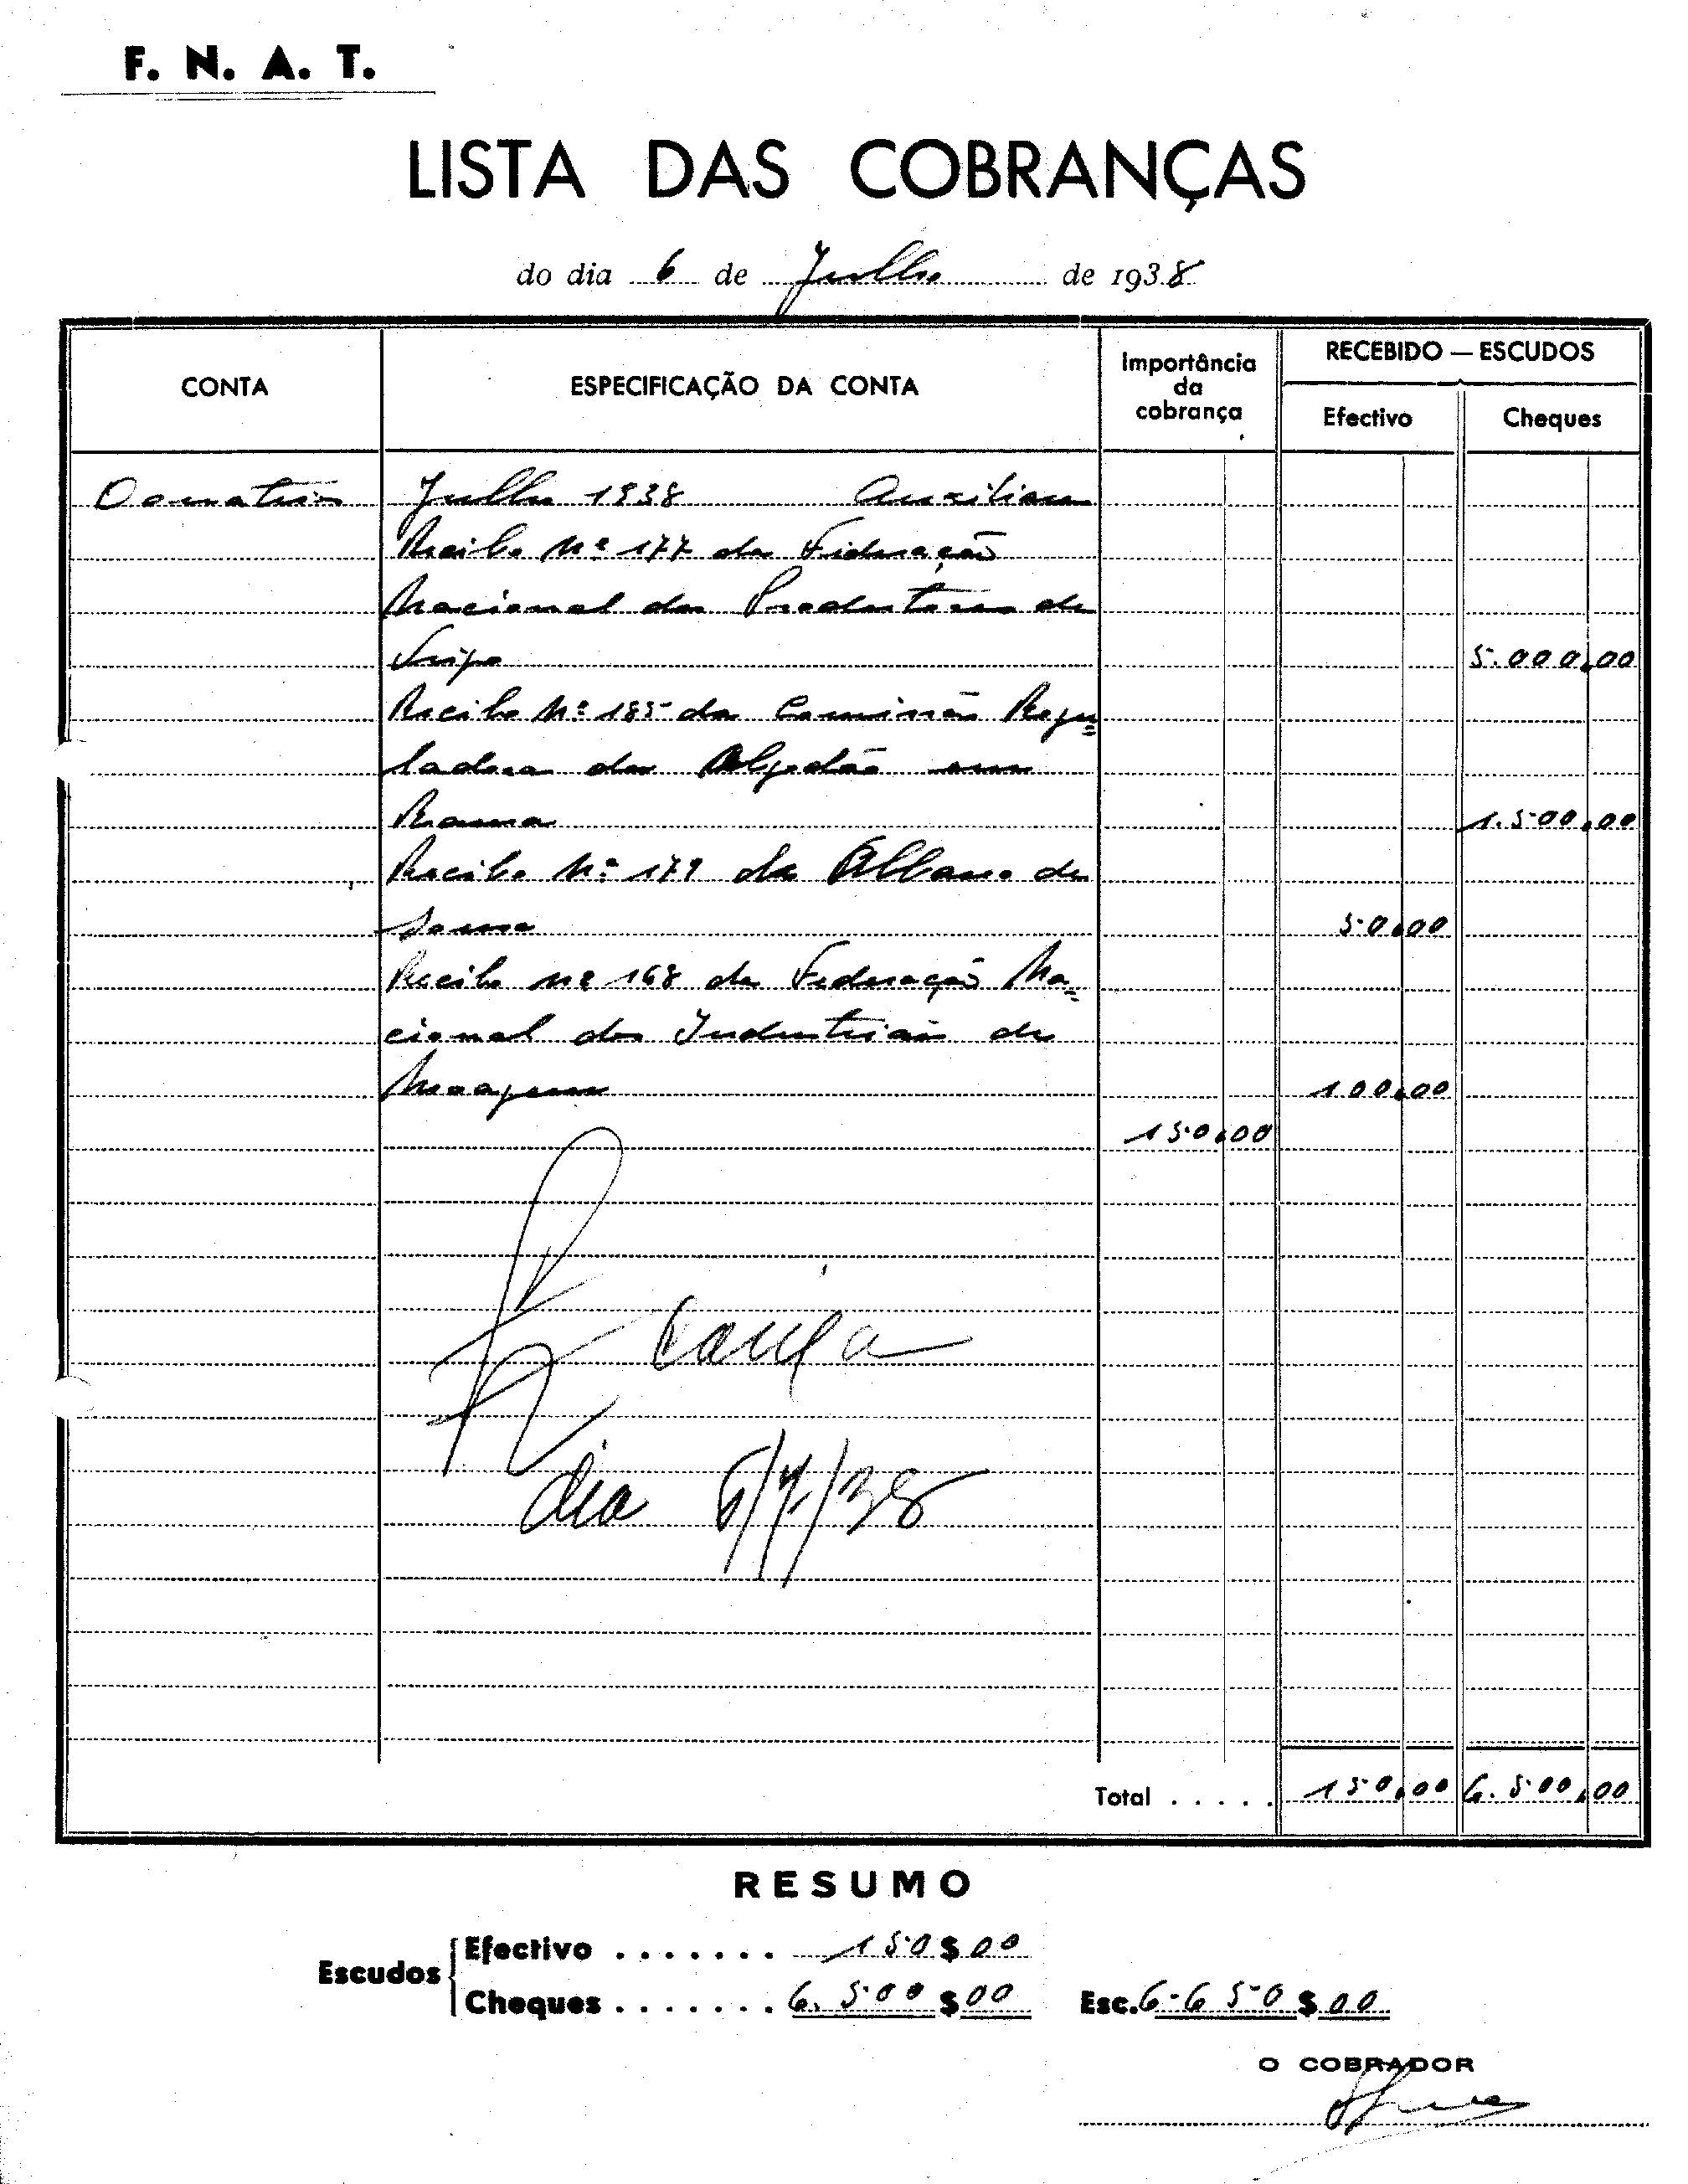 F. N. A. T.
LISTA DAS COBRANÇAS
do dia 6 de Julho de 1938
CONTA
ESPECIFICAÇÃO DA CONTA
Importância
da
cobrança
RECEBIDO — ESCUDOS
Efectivo
Cheques
Donativos Julho 1938 Auxiliares
Recibo Nº 177 da Federação
Nacional dos Produtores de
Trigo 5.000,00
Recibo Nº 185 da Comissão Regu=
ladora do Algodão em
Rama 1.500,00
Recibo Nº 179 de Albano de
Sousa 50,00
Recibo nº 168 da Federação Na=
cional dos Industriais de
Moagem 100,00
150,00
Caixa
dia 6/7/38
Total ..... 150,00 6.500,00
RESUMO
Escudos
Efectivo ....... 150$00
Cheques ....... 6.500$00
Esc. 6.650$00
O COBRADOR